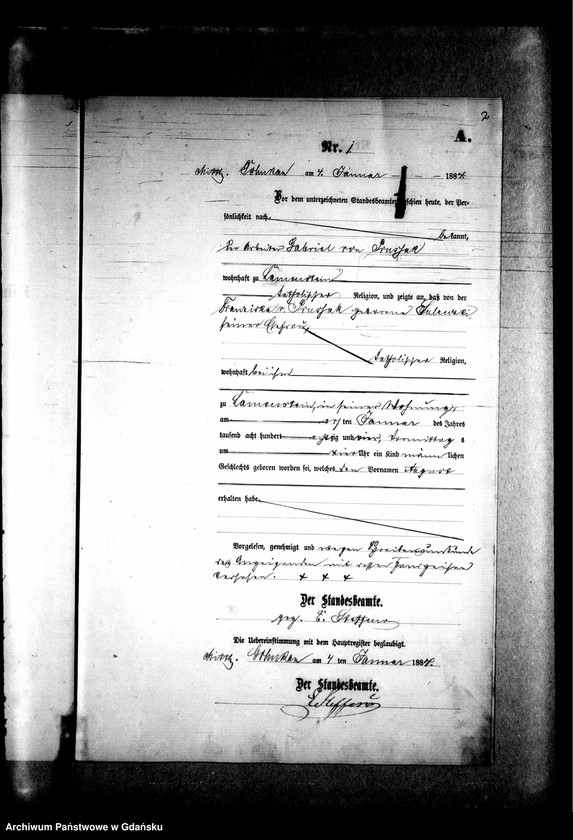 2
A.
Nr. 1
am 4. Januar 1884.
Vor dem unterzeichneten Standesbeamten erschien heute, der Per-
sönlichkeit nach
bekannt,
der Arbeiter Gabriel von
wohnhaft zu
katholischer Religion, und zeigte an, daß von der
geborene
seiner Ehefrau,
katholischer Religion,
wohnhaft bei ihm
zu in seiner Wohnung,
am ersten Januar des Jahres
tausend acht hundert achtzig und vier, Vormittags
um vier Uhr ein Kind männlichen
Geschlechts geboren worden sei, welches den Vornamen August
erhalten habe.
Vorgelesen, genehmigt und wegen Schreibensunkunde
des Anzeigenden mit dessen Handzeichen
versehen. + + +
Der Standesbeamte.
gez. E. Steffens
Die Uebereinstimmung mit dem Hauptregister beglaubigt.
am 4 ten Januar 1884.
Der Standesbeamte.
E. Steffens
Archiwum Państwowe w Gdańsku